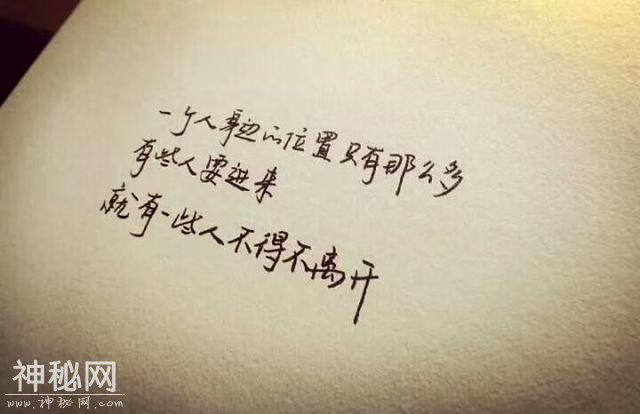 一个人身边的位置只有那么多
有些人要进来
就有一些人不得不离开
神秘网
www.神秘网.com